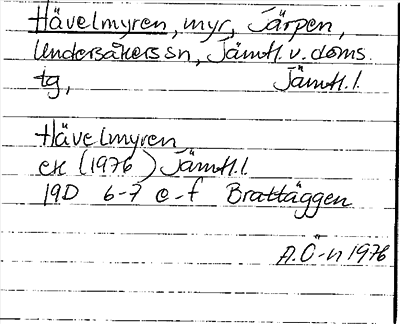 Hävelmyren, myr, Järpen,
Undersåkers sn, Jämtl. v. doms.
tg, Jämtl. l.
Hävelmyren
ek (1976) Jämtl. l.
19D 6-7 e-f Brattäggen
A. Ö-n 1976